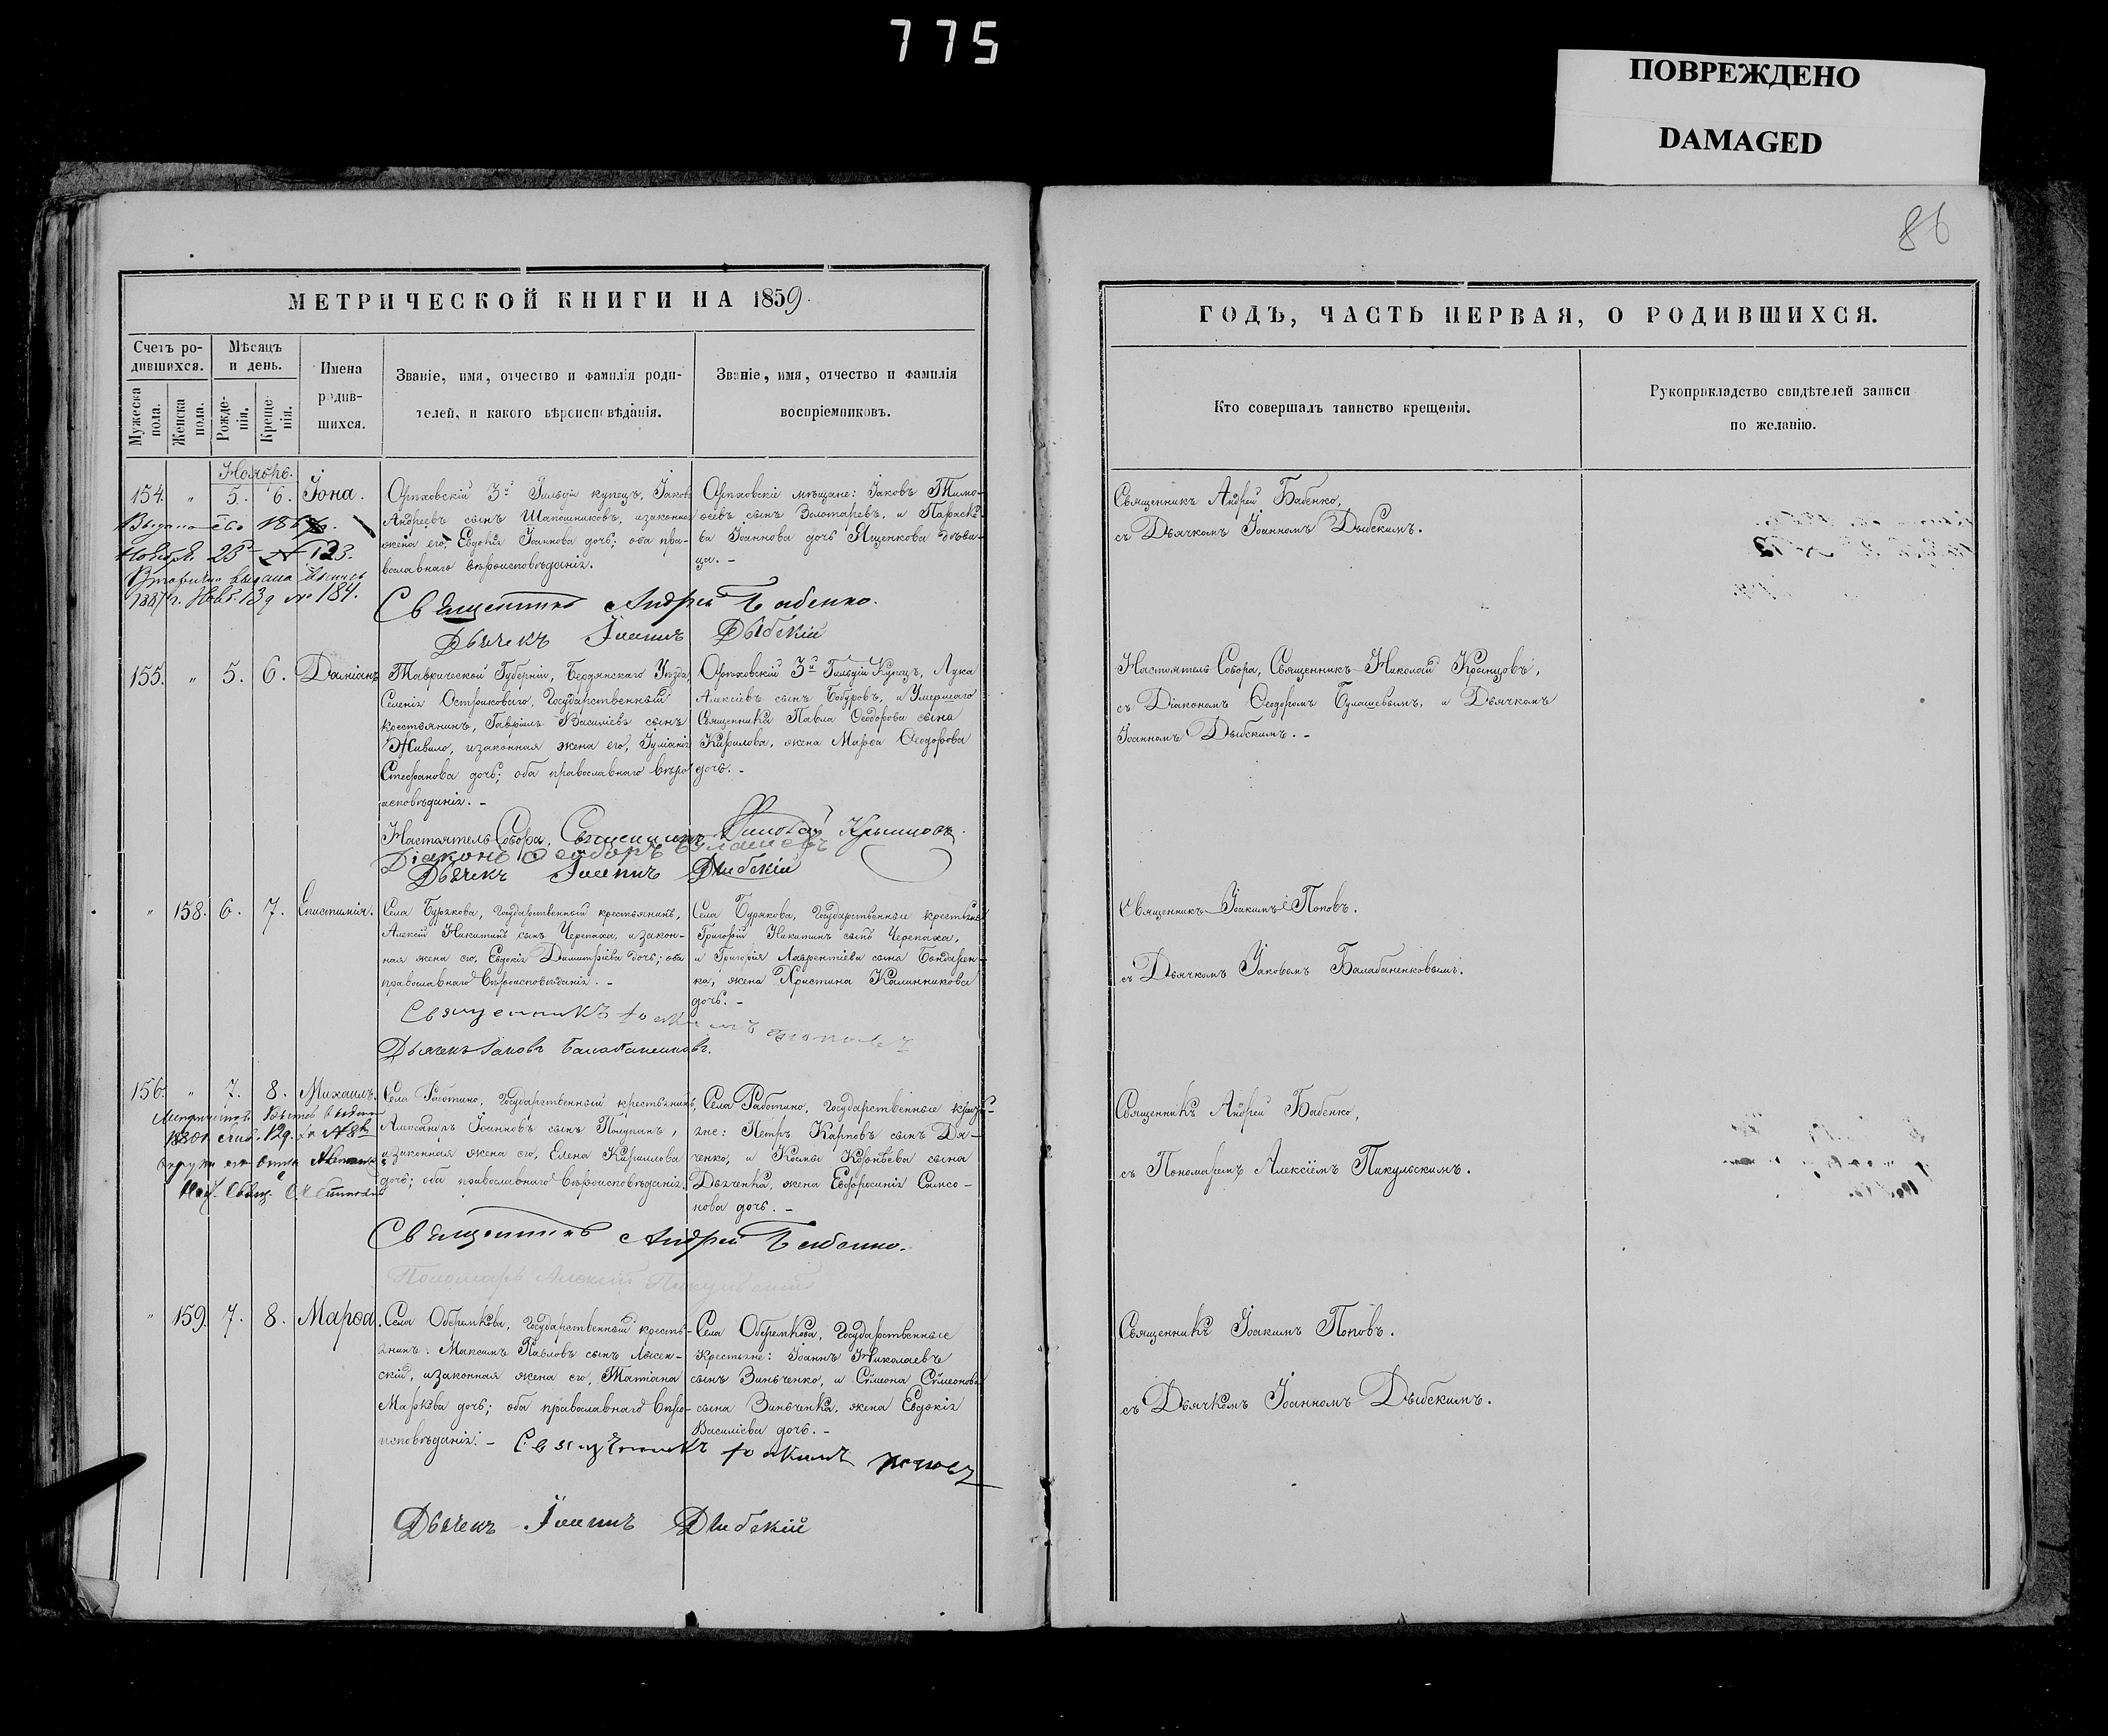 775
ПОВРЕЖДЕНО
DAMAGED
86
МЕТРИЧЕСКОЙ КНИГИ НА 1859.
Счетъ ро-
дившихся.
Мѣсяцъ
и день.
Мужеска
пола.
Женска
пола.
Рожде-
нія.
Креще-
нія.
Имена
родив-
шихся.
Званіе, имя, отчество и фамилія роди-
телей, и какого вѣроисповѣданія.
Званіе, имя, отчество и фамилія
воспріемниковъ.
Ноябрь.
154. " 5. 6. Іона.
Орѣховскій 3й Гильдіи купецъ, Іаковъ
Андреевъ сынъ Шапошниковъ, и законная
жена его, Евдокія Іоаннова дочь; оба пра-
вославнаго вѣроисповѣданія.
Орѣховскіе мѣщане: Іаковъ Тимо-
ѳеевъ сынъ Золотаревъ, и Параске-
ва Іоаннова дочь Ященкова дѣви-
ца. -
Ноября 23 № 123.
1887 г. Нояб. 13 д. № 184.
Священникъ Андрей Бабенко.
Дьячекъ Іоаннъ Дыбскій
155. " 5. 6. Даміанъ
Таврической Губерніи, Бердянскаго Уѣзда,
Селенія Остриковаго, Государственный
крестьянинъ, Гавріилъ Василіевъ сынъ
Живило, и законная жена его, Іуліанія
Стефанова дочь; оба православнаго вѣро-
исповѣданія. -
Орѣховскій 3й Гильдіи Купецъ, Лука
Алексіевъ сынъ Бобуровъ, и Умершаго
Священника Павла Ѳеодорова сына
Кирилова, жена Марѳа Ѳеодорова
дочь. -
Настоятель Собора, Священникъ Николай Крынцовъ.
Діаконъ Ѳеодоръ Булашевъ
Дьячекъ Іоаннъ Дыбскій
" 158. 6. 7. Епистимія.
Села Бурякова, Государственный крестьянинъ,
Алексій Никитинъ сынъ Черепаха, и закон-
ная жена его, Евдокія Димитріева дочь; оба
православнаго Вѣроисповѣданія. -
Села Бурякова, Государственные крестьяне
Григорій Никитинъ сынъ Черепаха,
и Григорія Лаврентіева сына Бондарен-
ка, жена Христина Калинникова
дочь. -
Священникъ Іоакимъ Поповъ
Дьячекъ Іаковъ Балабаненковъ.
156. " 7. 8. Михаилъ.
Села Работино, Государственный крестьянинъ,
Александръ Іоанновъ сынъ Полупанъ,
и законная жена его, Елена Кириллова
дочь; оба православнаго Вѣроисповѣданія.
Села Работино, Государственные кресть-
яне: Петръ Карповъ сынъ Дя-
ченко, и Косьмы Корнѣева сына
Дяченка, жена Евфросинія Самсо-
нова дочь. -
Священникъ Андрей Бабенко.
Пономарь Алексій Пикульскій
" 159. 7. 8. Марѳа.
Села Оберемкова, Государственный кресть-
янинъ: Максимъ Павловъ сынъ Лысен-
скій, и законная жена его, Татіана
Маркова дочь; оба православнаго Вѣро-
исповѣданія. -
Села Оберемкова, Государственные
Крестьяне: Іоаннъ Николаевъ
сынъ Зинченко, и Сѵмеона Сѵмеонова
сына Зинченка, жена Евдокія
Василіева дочь. -
Священникъ Іоакимъ Поповъ
Дьячекъ Іоаннъ Дыбскій
ГОДЪ, ЧАСТЬ ПЕРВАЯ, О РОДИВШИХСЯ.
Кто совершалъ таинство крещенія.
Рукоприкладство свидѣтелей записи
по желанію.
Священникъ Андрей Бабенко,
съ Дьячкомъ Іоанномъ Дыбскимъ.
Настоятель Собора, Священникъ Николай Крынцовъ,
съ Діакономъ Ѳеодоромъ Булашевымъ, и Дьячкомъ
Іоанномъ Дыбскимъ. -
Священникъ Іоакимъ Поповъ.
съ Дьячкомъ Іаковомъ Балабаненковымъ.
Священникъ Андрей Бабенко,
съ Пономаремъ Алексіемъ Пикульскимъ.
Священникъ Іоакимъ Поповъ.
съ Дьячкомъ Іоанномъ Дыбскимъ.